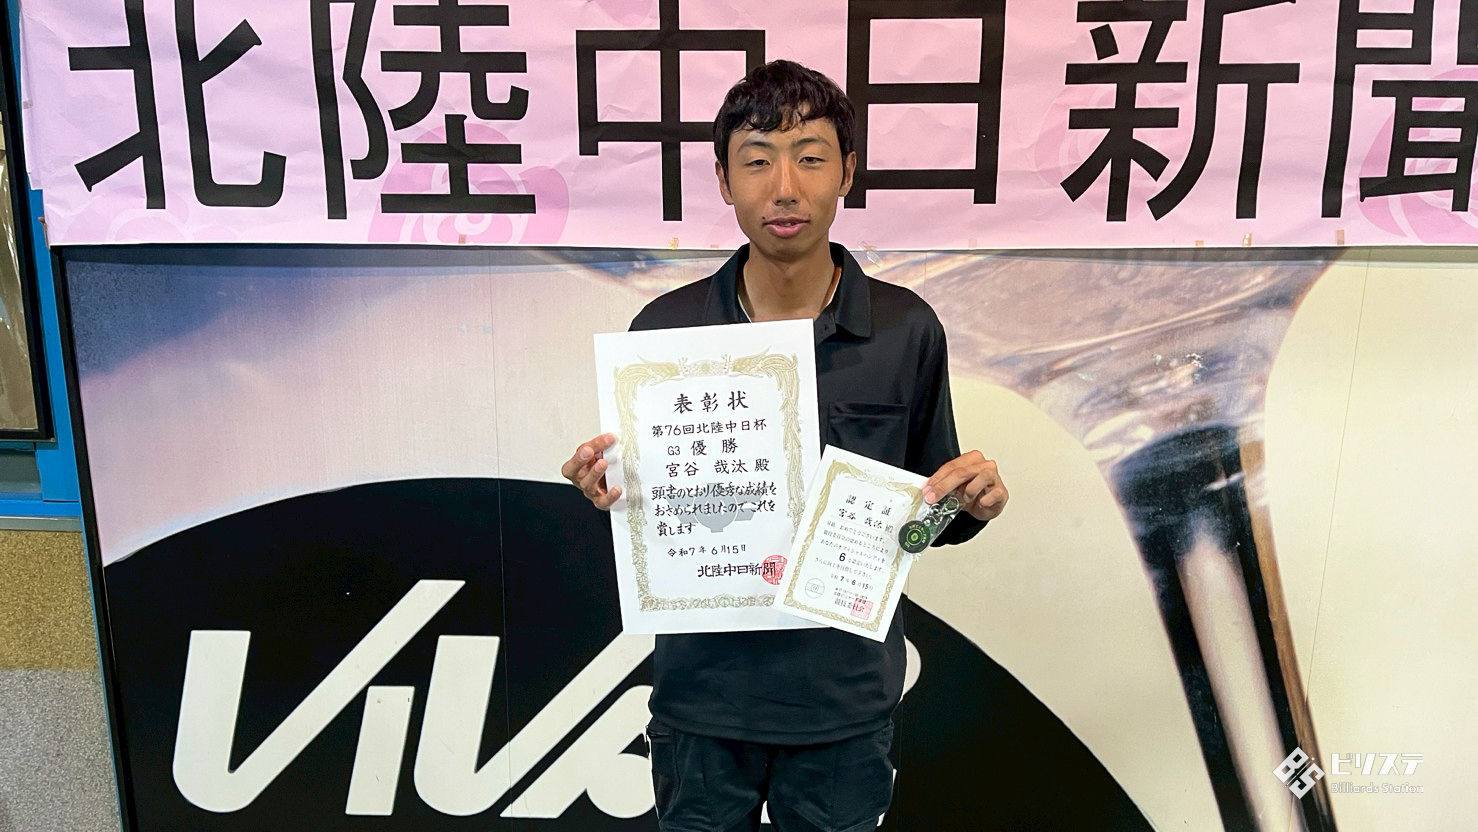 北陸中日新聞
表彰状
第76回北陸中日杯
G3 優勝
宮谷 哉汰 殿
頭書のとおり優秀な成績を
おさめられましたのでこれを
賞します
令和7年6月15日
北陸中日新聞
認定証
宮谷 哉汰 殿
6
さらに向上を目指して下さい。
令和7年6月15日
競技委員会
ViVA
ビリステ
Billiards Station